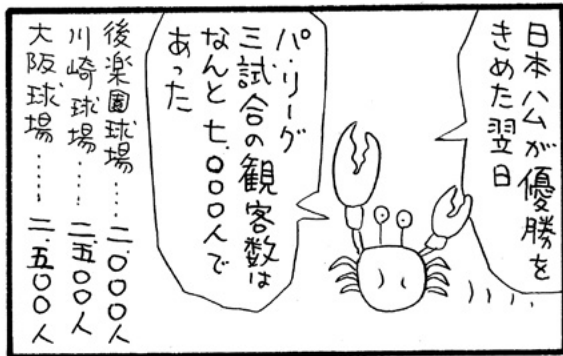 日本ハムが優勝を
きめた翌日
パ・リーグ
三試合の観客数は
なんと七.〇〇〇人で
あった
後楽園球場…二.〇〇〇人
川崎球場……二.五〇〇人
大阪球場……二.五〇〇人